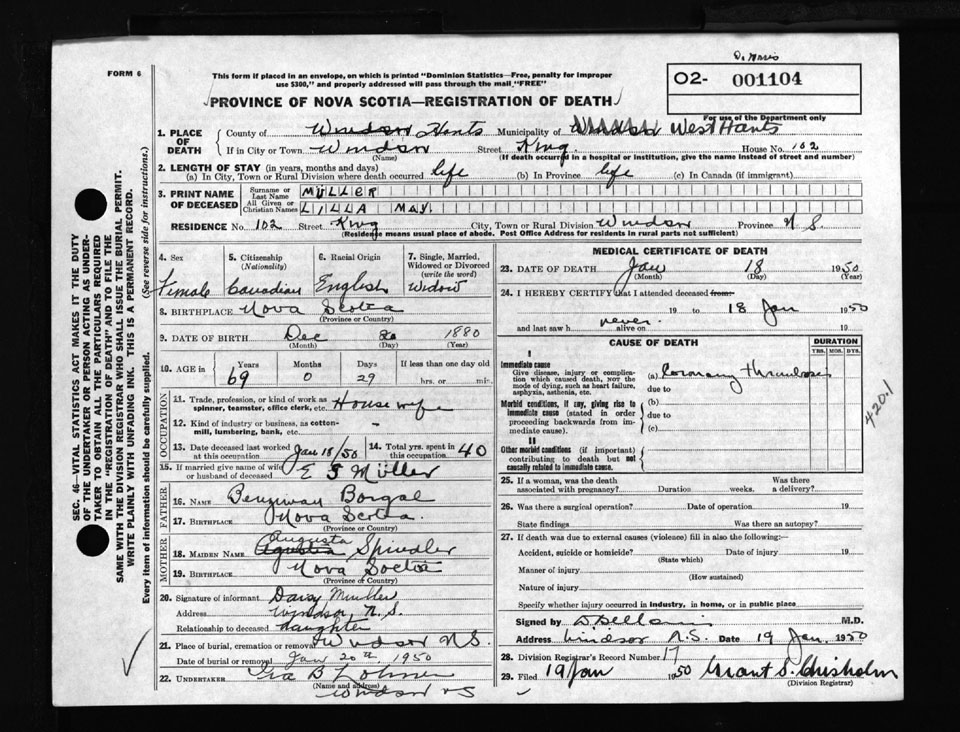 D. Morris
FORM 6
This form if placed in an envelope, on which is printed "Dominion Statistics—Free, penalty for improper
use $300," and properly addressed will pass through the mail "FREE"
O2- 001104
For use of the Department only
PROVINCE OF NOVA SCOTIA—REGISTRATION OF DEATH
1. PLACE OF DEATH
County of Windsor Hants Municipality of Windsor West Hants
If in City or Town Windsor Street King House No. 102
(Name) (If death occurred in a hospital or institution, give the name instead of street and number)
2. LENGTH OF STAY (in years, months and days)
(a) In City, Town or Rural Division where death occurred life (b) In Province life (c) In Canada (if immigrant)
3. PRINT NAME OF DECEASED
Surname or Last Name MÜLLER
All Given or Christian Names LILLA MAY
RESIDENCE No. 102 Street King City, Town or Rural Division Windsor Province N S
(Residence means usual place of abode. Post Office Address for residents in rural parts not sufficient)
4. Sex 5. Citizenship (Nationality) 6. Racial Origin 7. Single, Married, Widowed or Divorced (write the word)
Female Canadian English Widow
8. BIRTHPLACE Nova Scotia
(Province or Country)
9. DATE OF BIRTH Dec 20 1880
(Month) (Day) (Year)
10. AGE in Years Months Days If less than one day old
69 0 29 hrs. or min.
OCCUPATION
11. Trade, profession, or kind of work as spinner, teamster, office clerk, etc. House wife
12. Kind of industry or business, as cotton-mill, lumbering, bank, etc.
13. Date deceased last worked at this occupation Jan 18/50 14. Total yrs. spent in this occupation 40
15. If married give name of wife or husband of deceased E S Müller
FATHER
16. NAME Borgal
17. BIRTHPLACE Nova Scotia
(Province or Country)
MOTHER
Augusta
18. MAIDEN NAME Agustia Spindler
19. BIRTHPLACE Nova Scotia
(Province or Country)
20. Signature of informant Daisy Muller
Address Windsor, N. S.
Relationship to deceased daughter
21. Place of burial, cremation or removal Windsor N.S.
Date of burial or removal Jan 20th, 1950
22. UNDERTAKER Ira B
(Name and address)
Windsor NS
MEDICAL CERTIFICATE OF DEATH
23. DATE OF DEATH Jan 18 1950
(Month) (Day) (Year)
24. I HEREBY CERTIFY that I attended deceased from:
19 to 18 Jan 1950
and last saw h never alive on 19
CAUSE OF DEATH DURATION
YRS. MOS. DYS.
I
Immediate cause
Give disease, injury or complication which caused death, NOT the mode of dying, such as heart failure, asphyxia, asthenia, etc.
(a) Coronary thrombosis
due to
Morbid conditions, if any, giving rise to immediate cause (stated in order proceeding backwards from immediate cause).
(b)
due to
(c)
II
Other morbid conditions (if important) contributing to death but not causally related to immediate cause.
420.1
25. If a woman, was the death associated with pregnancy? Duration weeks. Was there a delivery?
26. Was there a surgical operation? Date of operation 19
State findings Was there an autopsy?
27. If death was due to external causes (violence) fill in also the following:—
Accident, suicide or homicide? Date of injury 19
(State which)
Manner of injury
(How sustained)
Nature of injury
Specify whether injury occurred in industry, in home, or in public place
Signed by M.D.
Address Windsor N.S. Date 19 Jan. 1950
28. Division Registrar's Record Number 17
29. Filed 19 Jan 1950 Grant S. Chisholm
(Division Registrar)
SEC. 46—VITAL STATISTICS ACT MAKES IT THE DUTY
OF THE UNDERTAKER OR PERSON ACTING AS UNDER-
TAKER TO OBTAIN ALL THE PARTICULARS REQUIRED
IN THE "REGISTRATION OF DEATH" AND TO FILE THE
SAME WITH THE DIVISION REGISTRAR WHO SHALL ISSUE THE BURIAL PERMIT.
WRITE PLAINLY WITH UNFADING INK. THIS IS A PERMANENT RECORD.
Every item of information should be carefully supplied. (See reverse side for instructions.)